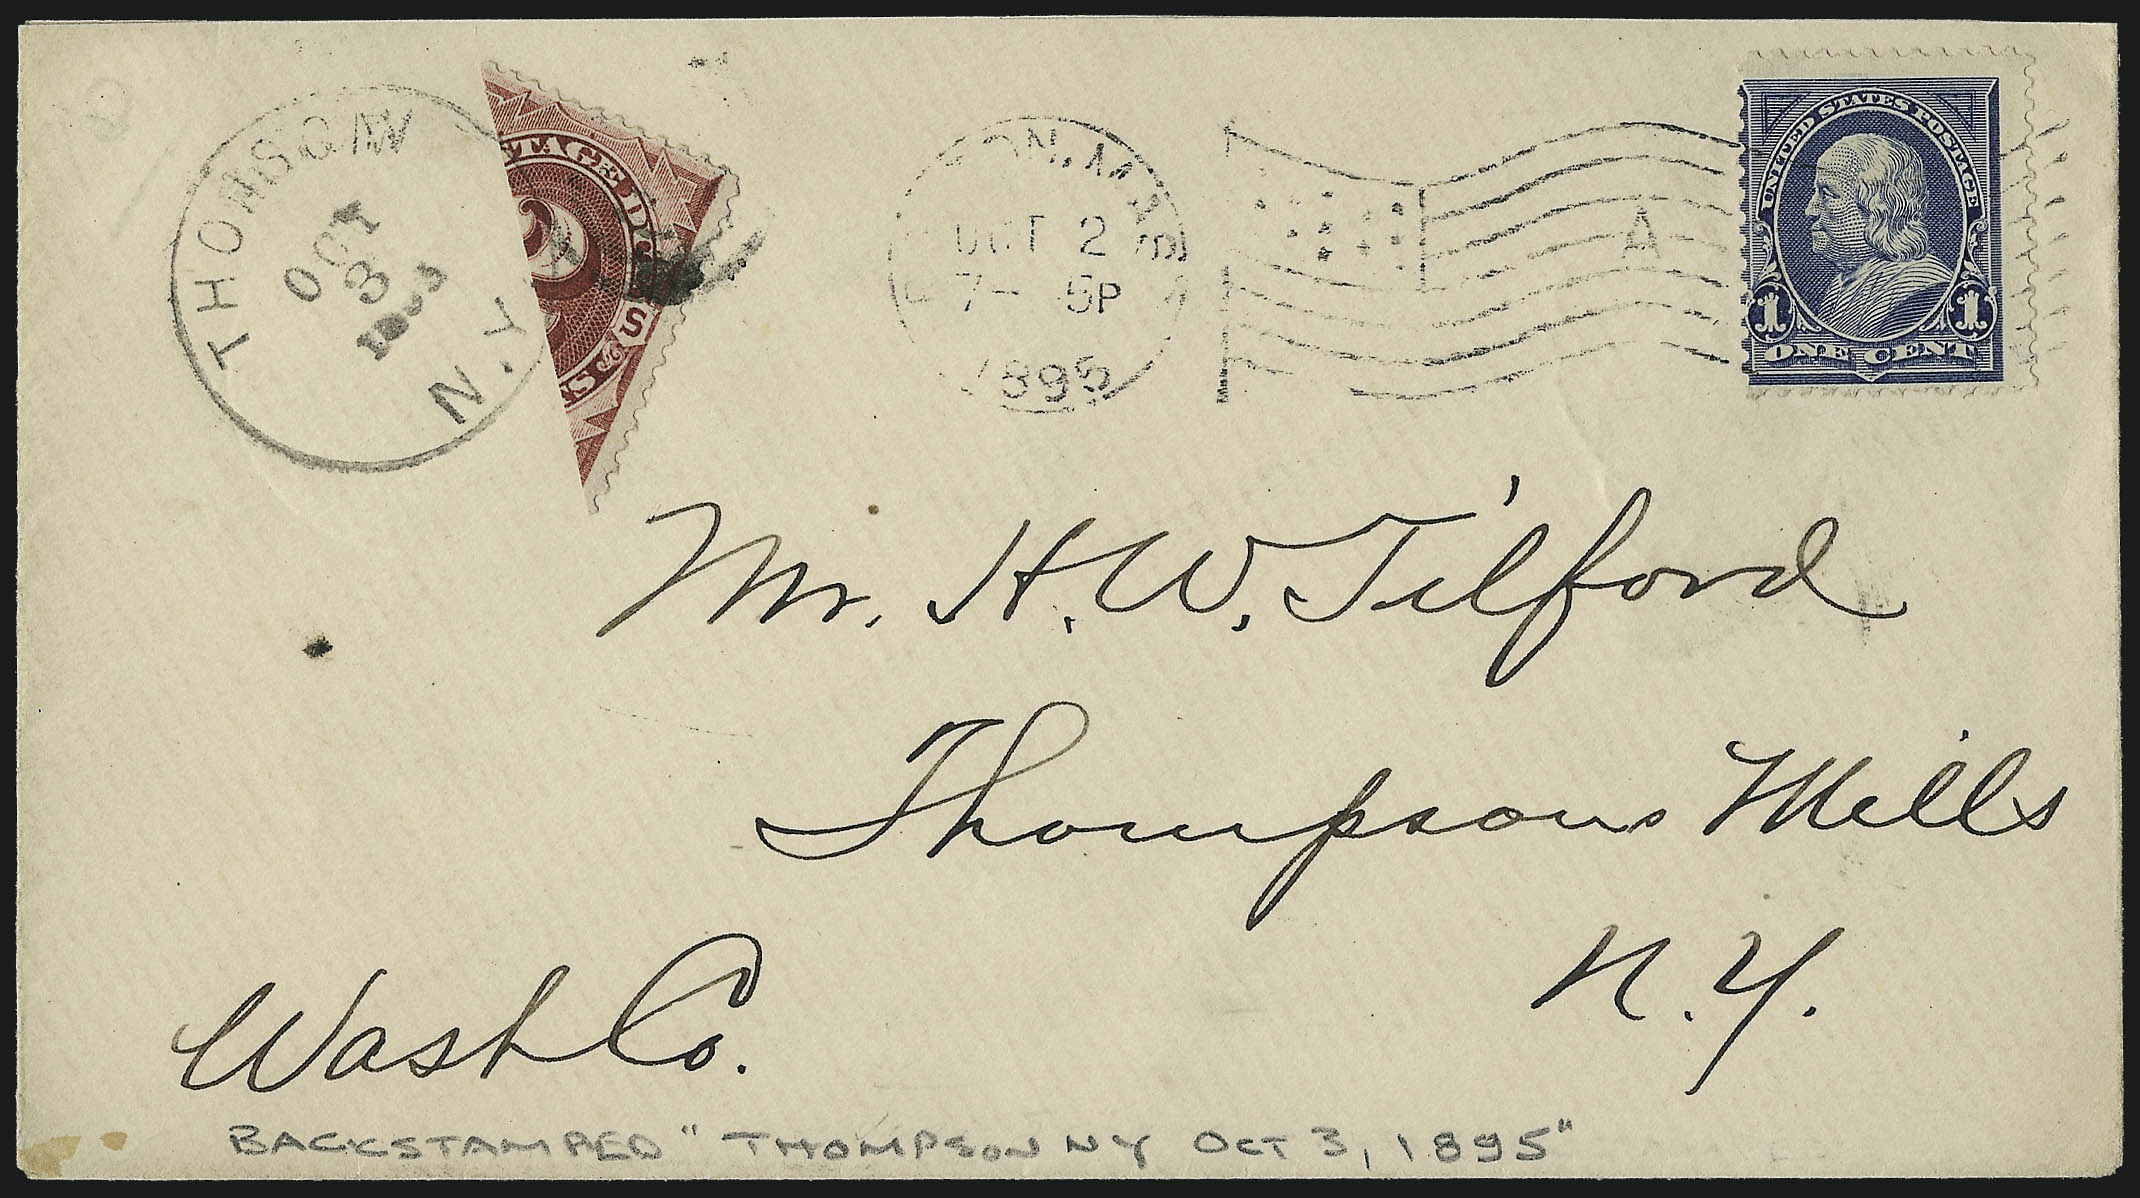 THOMSON
N.Y.
OCT
3
TAGE D
2
S
OCT 2
7- 5P
1895
A
UNITED STATES POSTAGE
1 1
ONE CENT
Mr. H. W. Tilford
Thompsons Mills
N.Y.
Wash Co.
BACKSTAMPED "THOMPSON NY OCT 3, 1895"